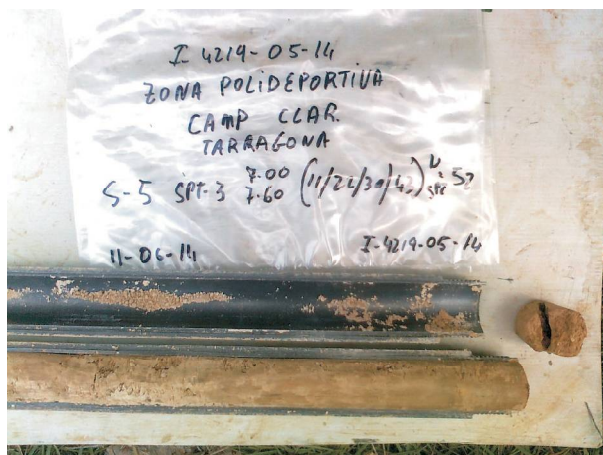 I-4219-05-14
ZONA POLIDEPORTIVA
CAMP CLAR.
TARRAGONA
S-5 SPT-3 7.00 7.60 (11/22/30/42) N SPT = 52
11-06-14 I-4219-05-14